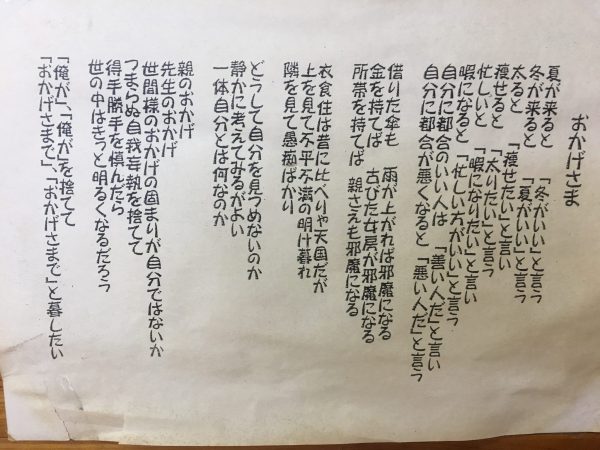 おかげさま
夏が来ると 「冬がいい」と言う
冬が来ると 「夏がいい」と言う
太ると 「痩せたい」と言い
痩せると 「太りたい」と言う
忙しいと 「暇になりたい」と言い
暇になると 「忙しい方がいい」と言う
自分に都合のいい人は 「善い人だ」と言い
自分に都合が悪くなると 「悪い人だ」と言う
借りた傘も 雨が上がれば邪魔になる
金を持てば 古びた女房が邪魔になる
所帯を持てば 親さえも邪魔になる
衣食住は昔に比べりゃ天国だが
上を見て不平不満の明け暮れ
隣を見て愚痴ばかり
どうして自分を見つめないのか
静かに考えてみるがよい
一体自分とは何なのか
親のおかげ
先生のおかげ
世間様のおかげの固まりが自分ではないか
つまらぬ自我妄執を捨てて
得手勝手を慎んだら
世の中はきっと明るくなるだろう
「俺が」、「俺が」を捨てて
「おかげさまで」、「おかげさまで」と暮したい